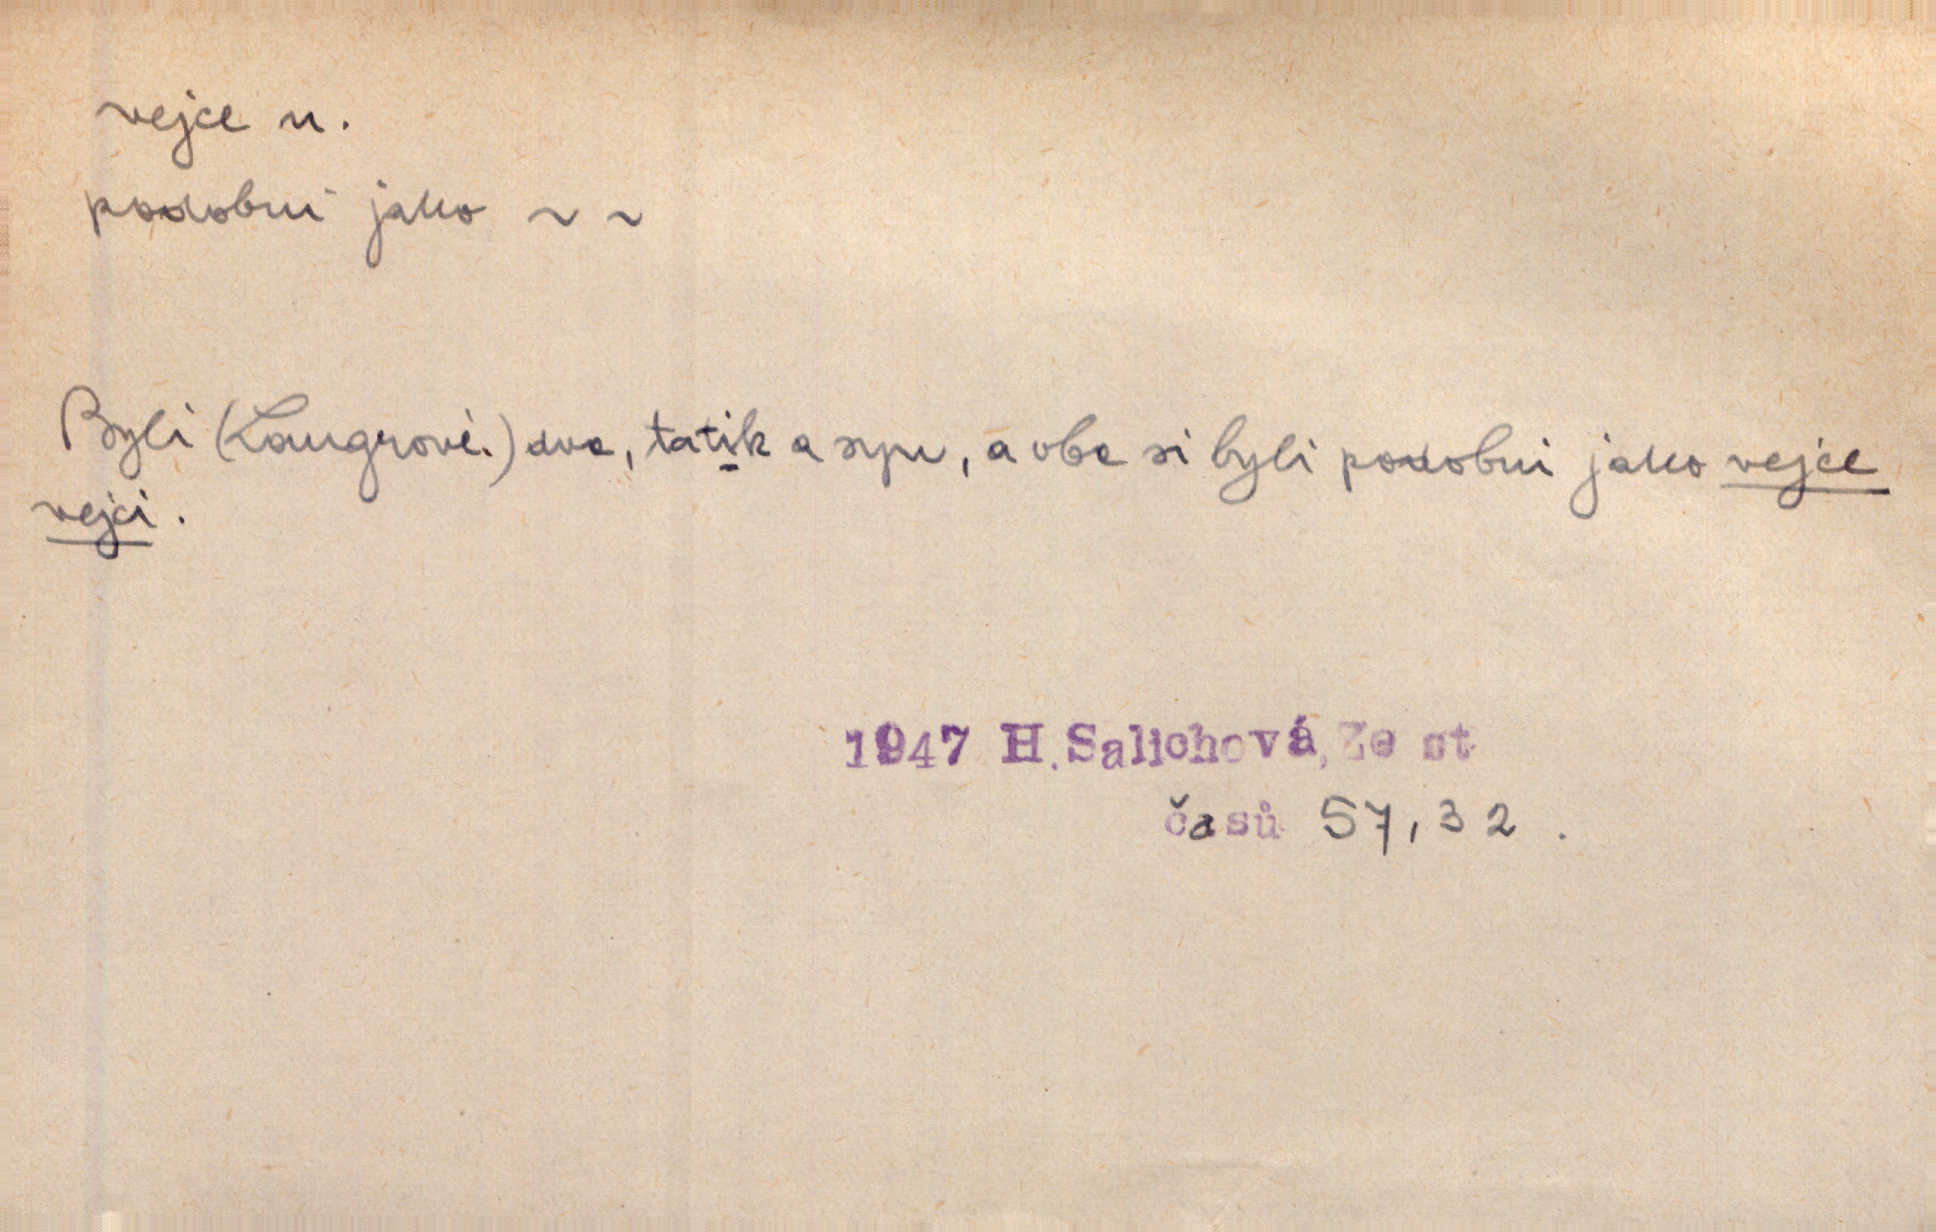 vejce n.
podobni jako ~ ~
Byli (Langrovi.) dva, tatik a syn, a oba si byli podobni jako vejce
vejci.
1947 H.Salichová, Ze st
časů 57,32.